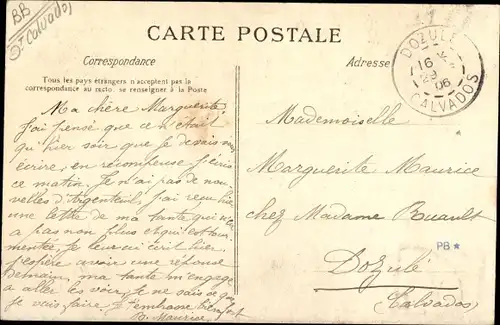 BB
Calvados
CARTE POSTALE
Correspondance
Adresse
Tous les pays étrangers n'acceptent pas la
correspondance au recto, se renseigner à la Poste
DOZULÉ
16
29
06
CALVADOS
Ma chère Marguerite
J'ai pensé que ce n'était
qu'hier soir que je devais
écrire, en récompense j'écris
ce matin. Je n'ai pas de nou-
velles d'Argenteuil, j'ai reçu hier
une lettre de ma tante qui n'en
a pas non plus et qui est tour-
mentée. Je leur ai écrit hier,
j'espère avoir une réponse
demain, ma tante m'engage
à aller les voir, Je ne sais ce que
je vais faire, Je t'embrasse bien fort
Maurice
Mademoiselle
Marguerite Maurice
chez Madame Ruault
PB
Dozulé
(Calvados)